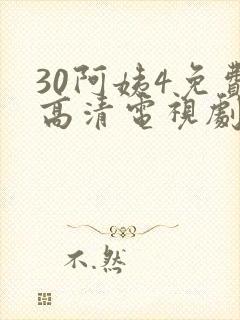 30阿姨4免費
高清電視劇
不.然